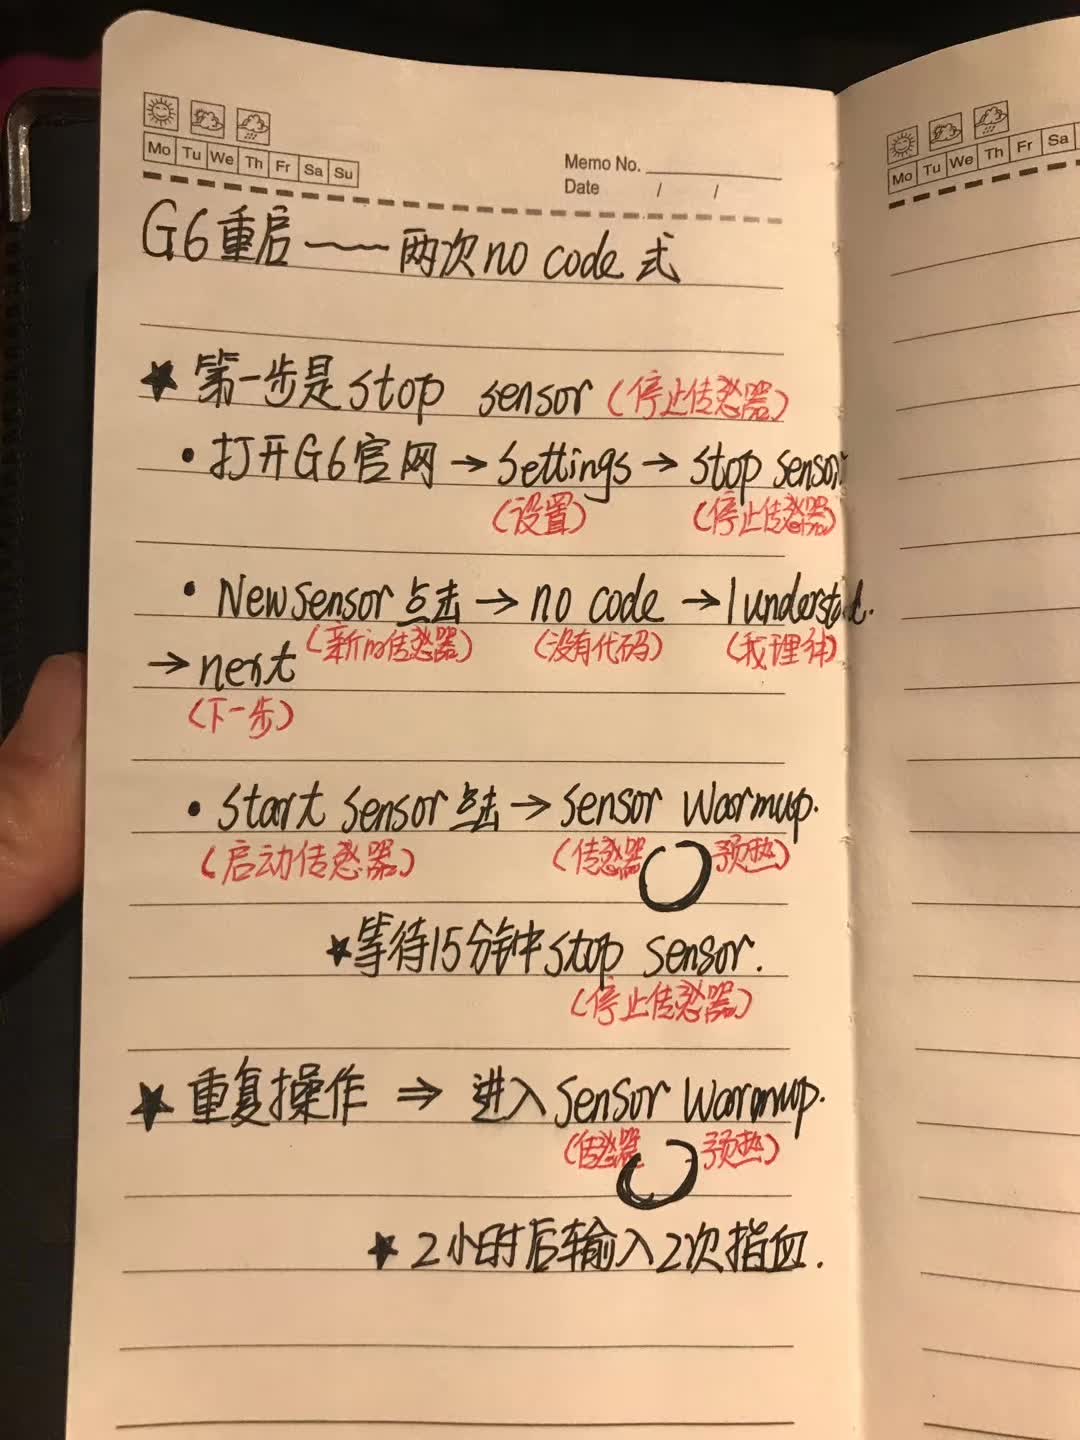 Mo Tu We Th Fr Sa Su
Memo No.
Date / /
G6重启——两次no code式
★第一步是stop sensor(停止传感器)
•打开G6官网→settings→stop sensor
(设置) (停止传感器)
•New sensor点击→no code→I understand.
(新的传感器) (没有代码) (我理解)
→next
(下一步)
•start sensor点击→sensor warmup.
(启动传感器) (传感器 预热)
★等待15分钟中stop sensor.
(停止传感器)
★重复操作⇒进入sensor warmup.
(传感器 预热)
★2小时后输入2次指血.
Mo Tu We Th Fr Sa